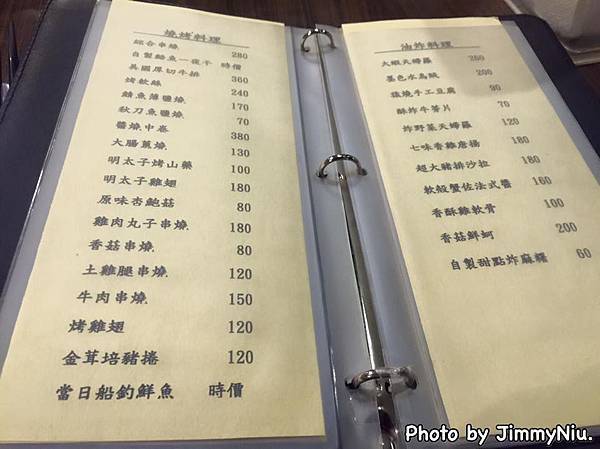 燒烤料理
綜合串燒 280
自製鯖魚一夜干 時價
美國厚切牛排 360
烤軟絲 240
鯖魚薄鹽燒 170
秋刀魚鹽燒 70
醬燒中卷 380
大腸蔥燒 130
明太子烤山藥 100
明太子雞翅 180
原味杏鮑菇 80
雞肉丸子串燒 180
香菇串燒 80
土雞腿串燒 120
牛肉串燒 150
烤雞翅 120
金茸培豬捲 120
當日船釣鮮魚 時價
油炸料理
大蝦天婦羅
墨色水烏賊 200
燒手工豆腐 90
酥炸牛蒡片 70
炸野菜天婦羅 120
七味香雞唐揚 180
超大豬排沙拉 180
軟殼蟹佐法式醬 160
香酥雞軟骨 100
香菇鮮蚵 200
自製甜點炸麻糬 60
Photo by JimmyNiu.